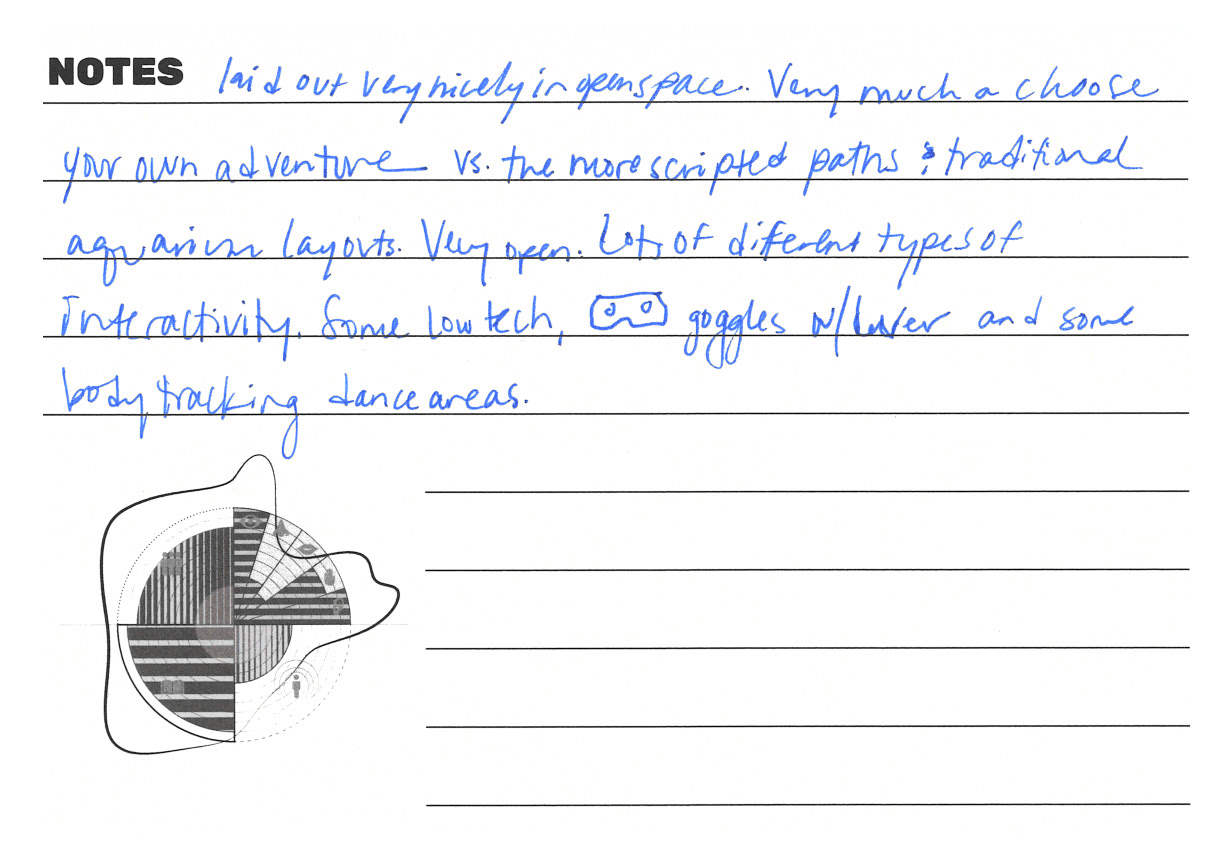 NOTES laid out very nicely in open space. Very much a choose
your own adventure vs. the more scripted paths & traditional
aquarium layouts. Very open. Lots of different types of
Interactivity. Some low tech, goggles w/ and some
body tracking dance areas.